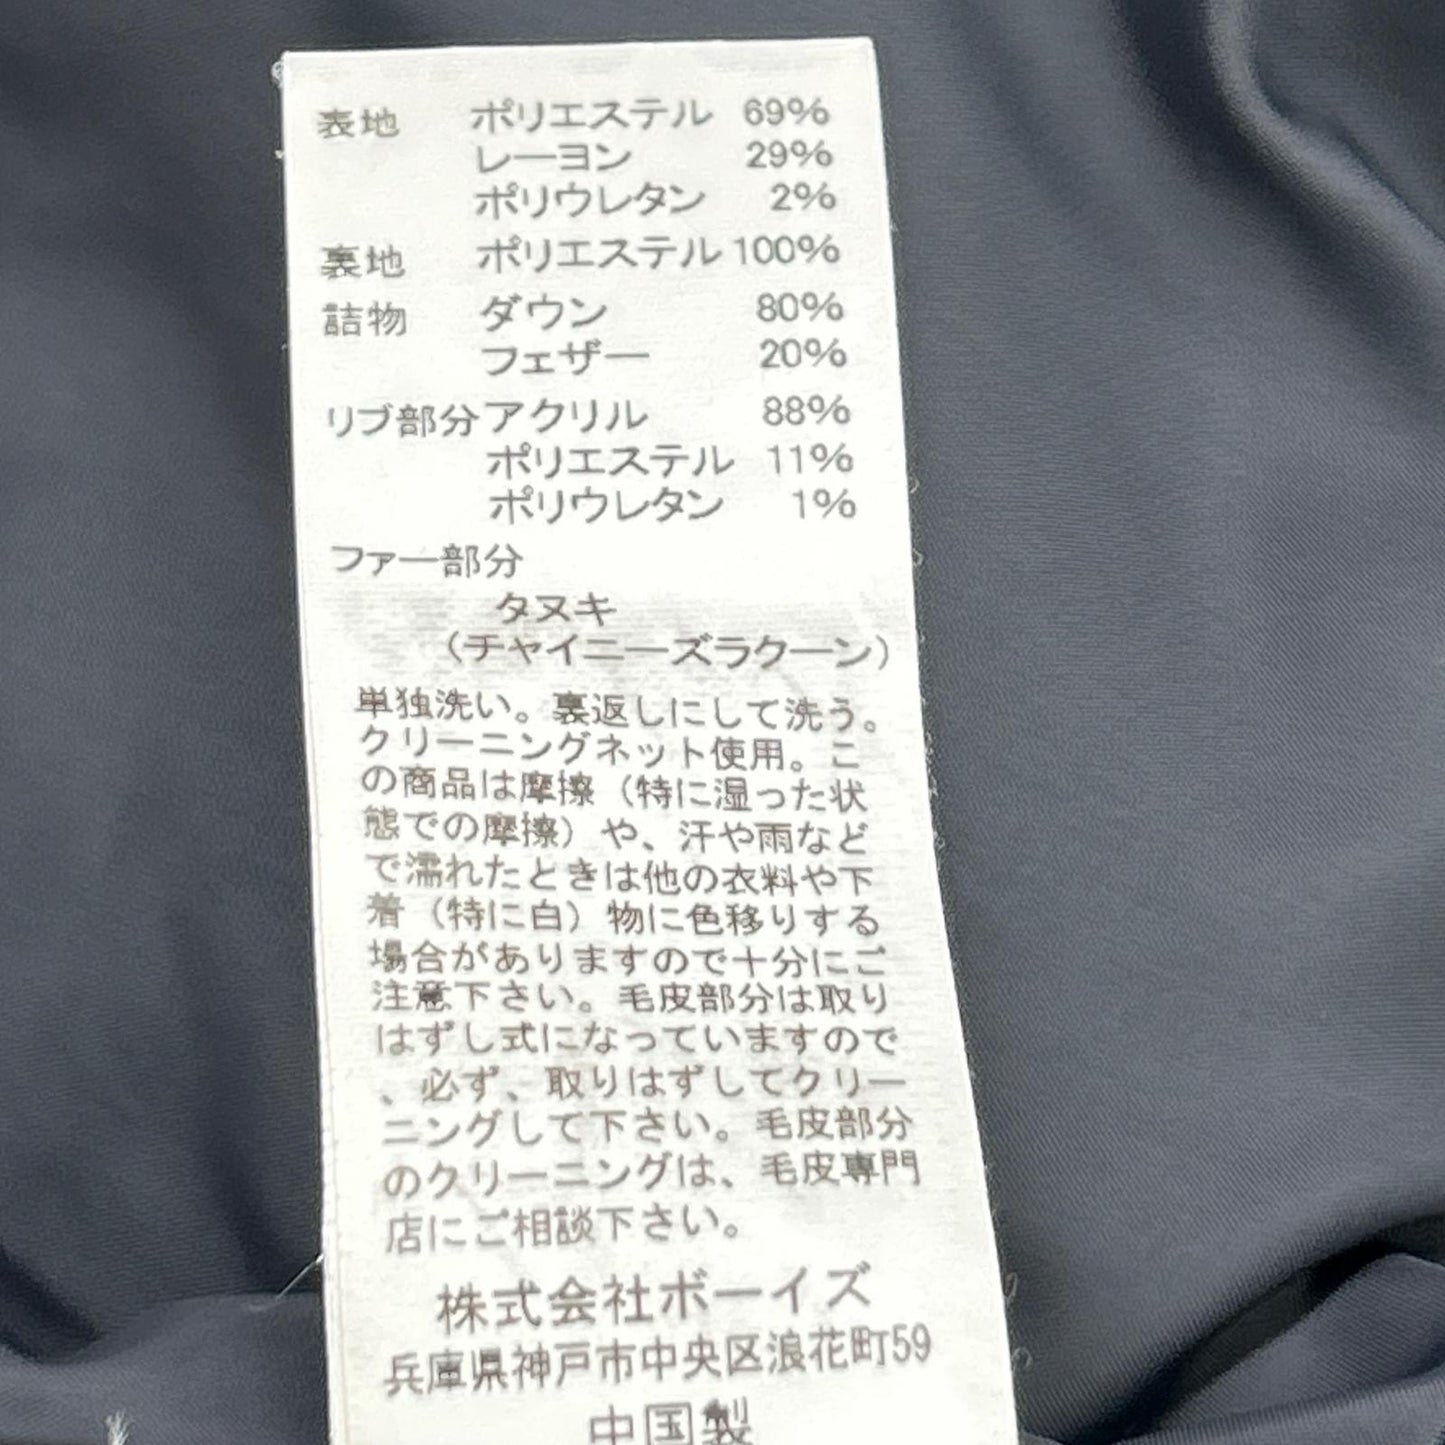 表地 ポリエステル 69%
レーヨン 29%
ポリウレタン 2%
裏地 ポリエステル 100%
詰物 ダウン 80%
フェザー 20%
リブ部分 アクリル 88%
ポリエステル 11%
ポリウレタン 1%
ファー部分
タヌキ
(チャイニーズラクーン)
単独洗い。裏返しにして洗う。
クリーニングネット使用。こ
の商品は摩擦(特に湿った状
態での摩擦)や、汗や雨など
で濡れたときは他の衣料や下
着(特に白)物に色移りする
場合がありますので十分にご
注意下さい。毛皮部分は取り
はずし式になっていますので
、必ず、取りはずしてクリー
ニングして下さい。毛皮部分
のクリーニングは、毛皮専門
店にご相談下さい。
株式会社ボーイズ
兵庫県神戸市中央区浪花町59
中国製